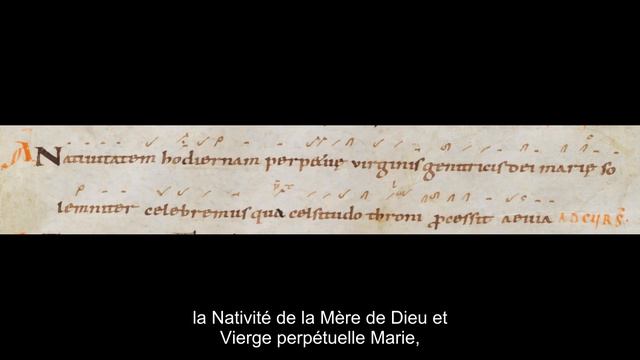 A Natiuitatem hodiernam perpetue uirginis genitricis dei marie so
lemniter celebremus qua celsitudo throni processit aeuia AD CURS
la Nativité de la Mère de Dieu et
Vierge perpétuelle Marie,